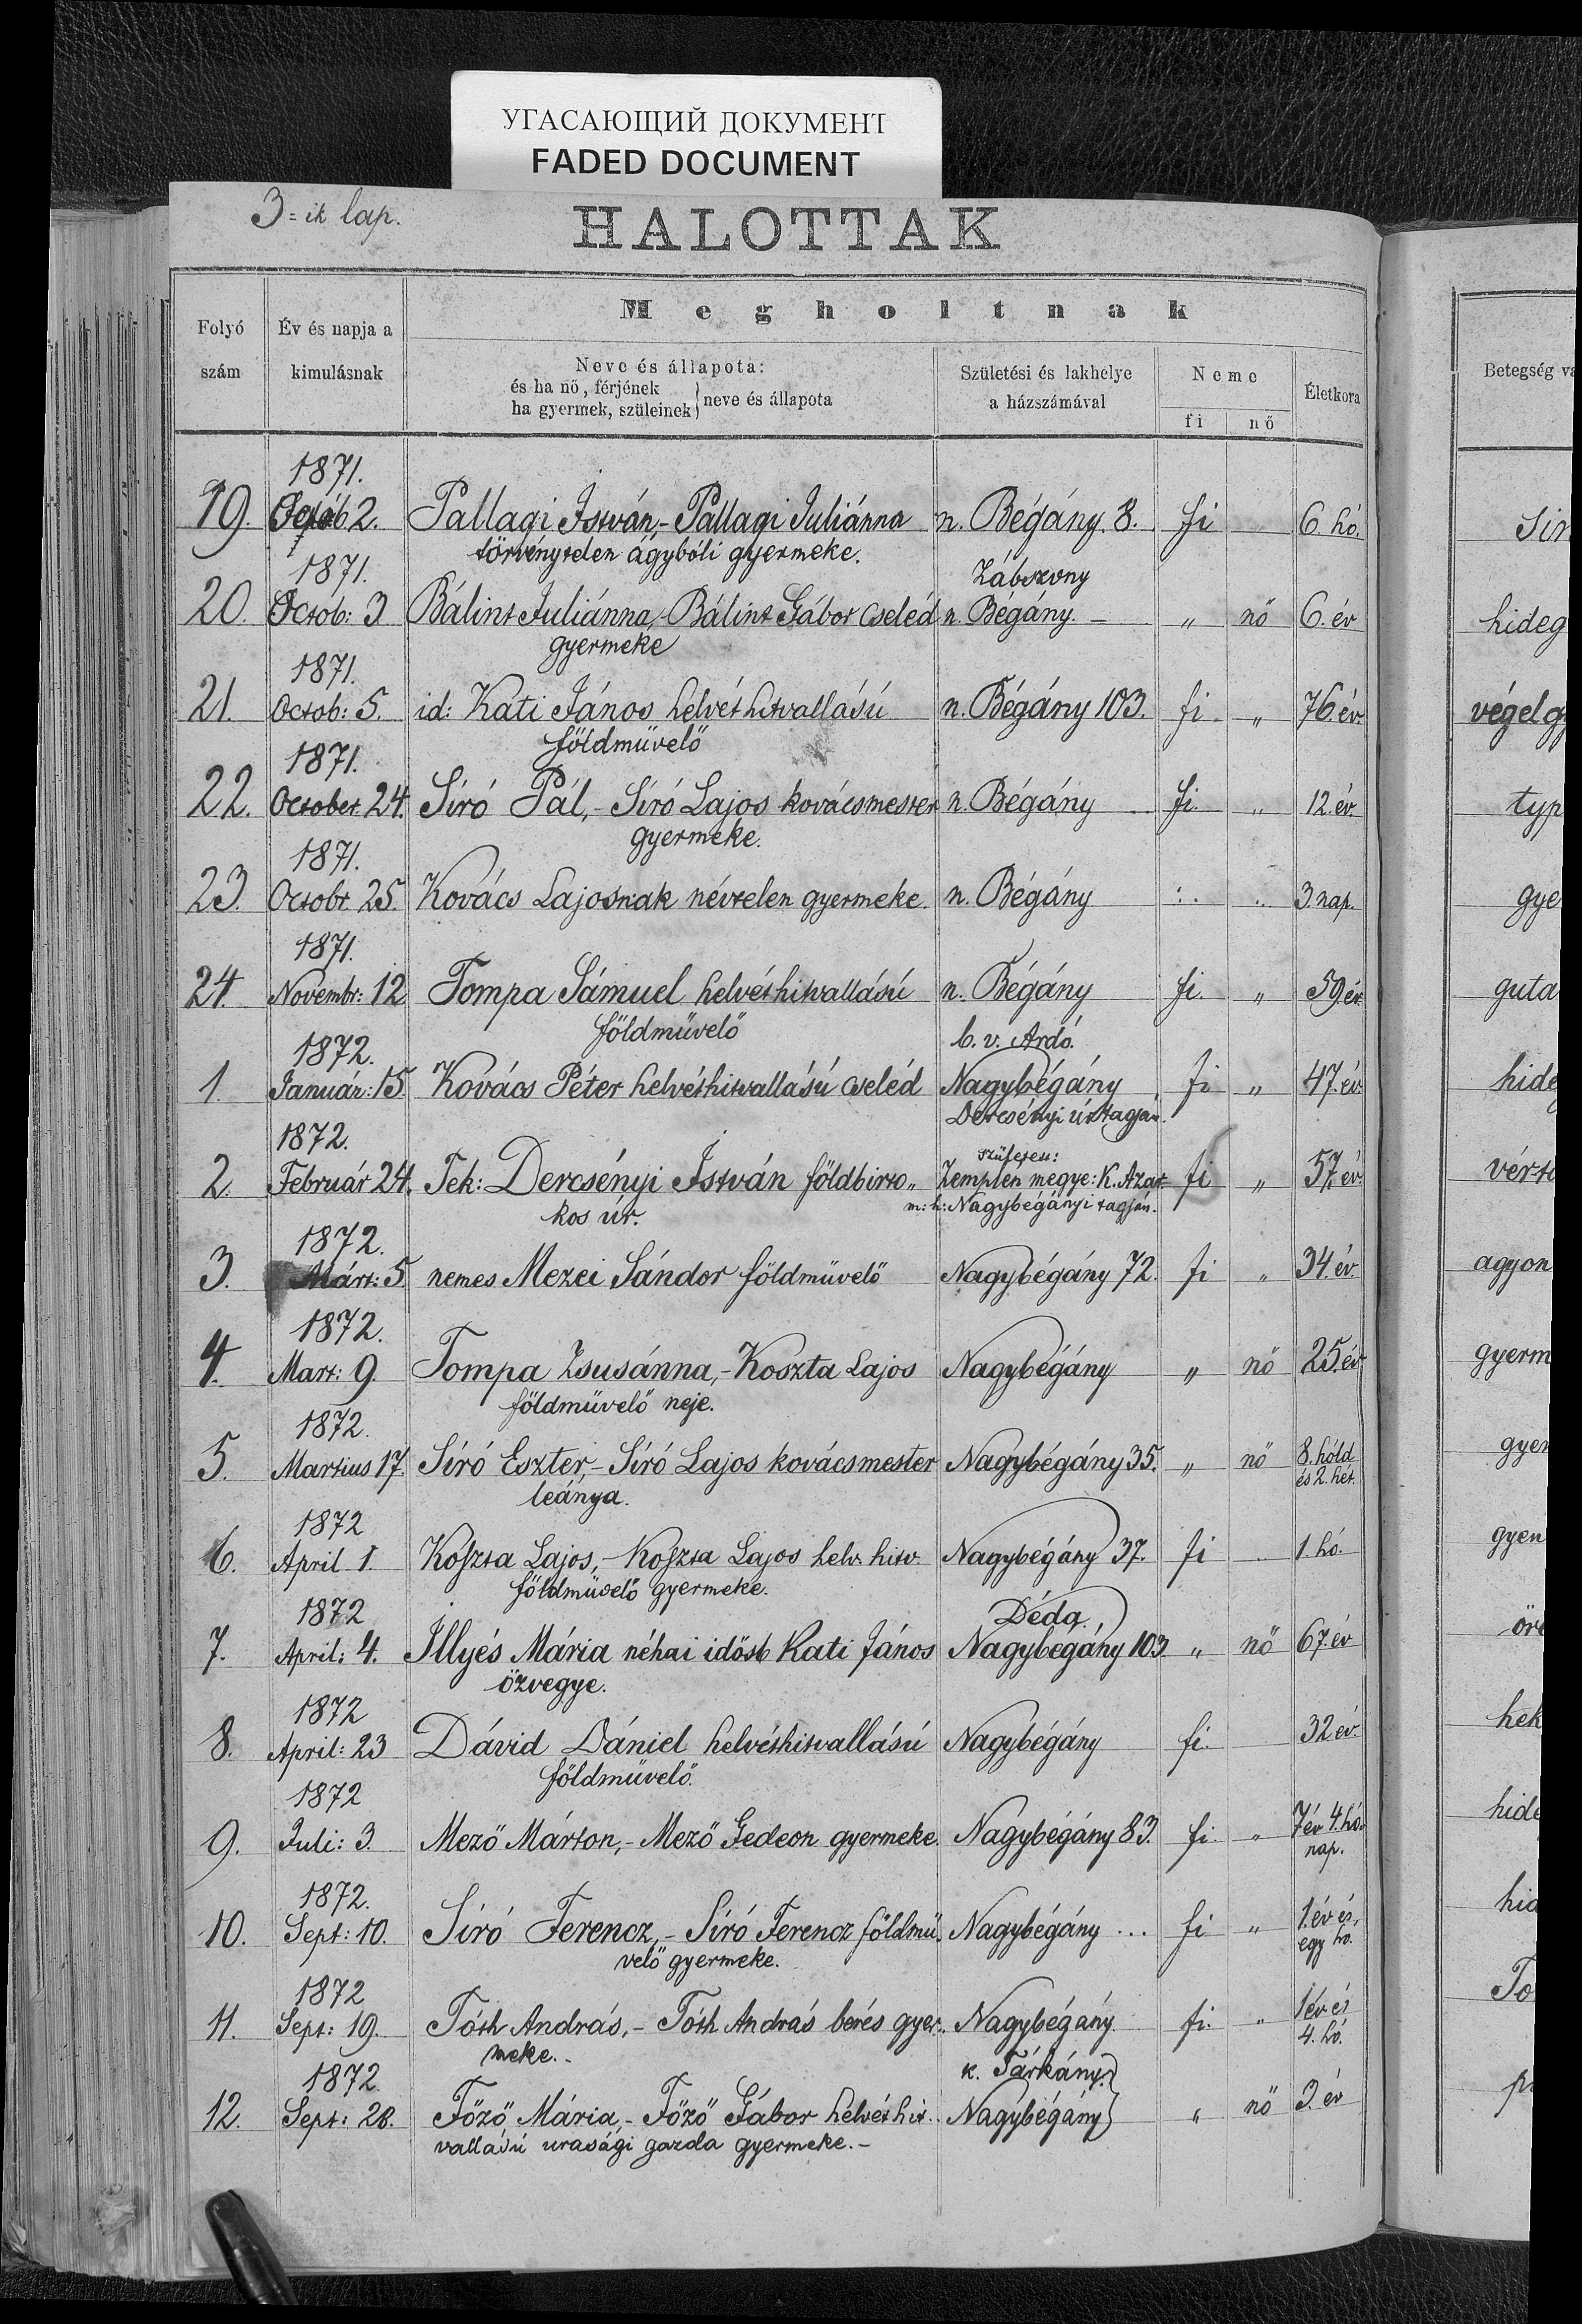 УГАСАЮЩИЙ ДОКУМЕНТ
FADED DOCUMENT
3=ik lap.
HALOTTAK
Folyó szám
Év és napja a kimulásnak
Megholtnak
Neve és állapota:
és ha nő, férjének
ha gyermek, szüleinek } neve és állapota
Születési és lakhelye
a házszámával
Neme
fi nő
Életkora
Betegség va
1871.
19. Octob 2. Pallagi István,- Pallagi Juliánna n. Bégány. 8. fi „ 6. hó. Sin
törvénytelen ágybóli gyermeke.
1871. Zábszony
20. Octob: 3 Bálint Juliánna,- Bálint Gábor cseléd n. Bégány. - „ nő 6. év hideg
gyermeke
1871.
21. Octob: 5. id: Kati János helvét hitvallású n. Bégány 103. fi „ 76. év. végelg
földmüvelő
1871.
22. October 24. Síró Pál,- Síró Lajos kovácsmester n. Bégány fi. „ 12. év. typ
gyermeke.
1871.
23. Octobr. 25. Kovács Lajosnak névtelen gyermeke n. Bégány : . .. 3 nap. gye
1871.
24. Novembr: 12 Tompa Sámuel helvét hitvallású n. Bégány fi. „ 59 év guta
földmüvelő
1872. b. v. Ardó.
1. Január: 15. Kovács Péter helvét hitvallású cseléd Nagybégány fi „ 47. év. hide
Dercsényi úr tagján.
1872. születen:
2. Február 24. Tek: Dercsényi István földbirto„ Zemplen megye: K. Azar. fi „ 57. év. vért
kos úr. m: h: Nagybégányi tagján.
1872.
3. Márt: 5 nemes Mezei Sándor földmüvelő Nagybégány 72. fi „ 34. év. agyon
1872.
4. Mart: 9. Tompa Zsusánna,- Koszta Lajos Nagybégány „ nő 25. év gyerm
földmüvelő neje.
1872.
5. Martius 17. Síró Eszter,- Síró Lajos kovácsmester Nagybégány 35. „ nő 8. hóld gyer
leánya. és 2. hét.
1872
6. April 1. Koszta Lajos,- Koszta Lajos helv. hitv. Nagybégány 37. fi .. 1. hó. gyen
földmüvelő gyermeke.
1872 Déda.
7. April: 4. Illyés Mária néhai idősb Kati János Nagybegány 103 „ nő 67. év
özvegye.
1872
8. April: 23 Dávid Dániel helvét hitvallású Nagybégány fi. 32 év. hek
földmüvelő.
1872
9. Juli: 3. Mező Márton,- Mező Gedeon gyermeke. Nagybégány 83. fi. „ 7 év 4. hó. hide
nap.
1872.
10. Sept: 10. Síró Ferencz,- Síró Ferencz földmü„ Nagybégány ... fi „ 1. év és hid
velő gyermeke. egy hó.
1872
11. Sept: 19. Tóth András,- Tóth András béres gyer„ Nagybégány. fi. „ 1 év és To
meke.- 4. hó.
1872. k. Tárkány.
12. Sept: 28. Főző Mária,- Főző Gábor helvét hit„ Nagybégány „ nő 3. év
vallású urasági gazda gyermeke.-